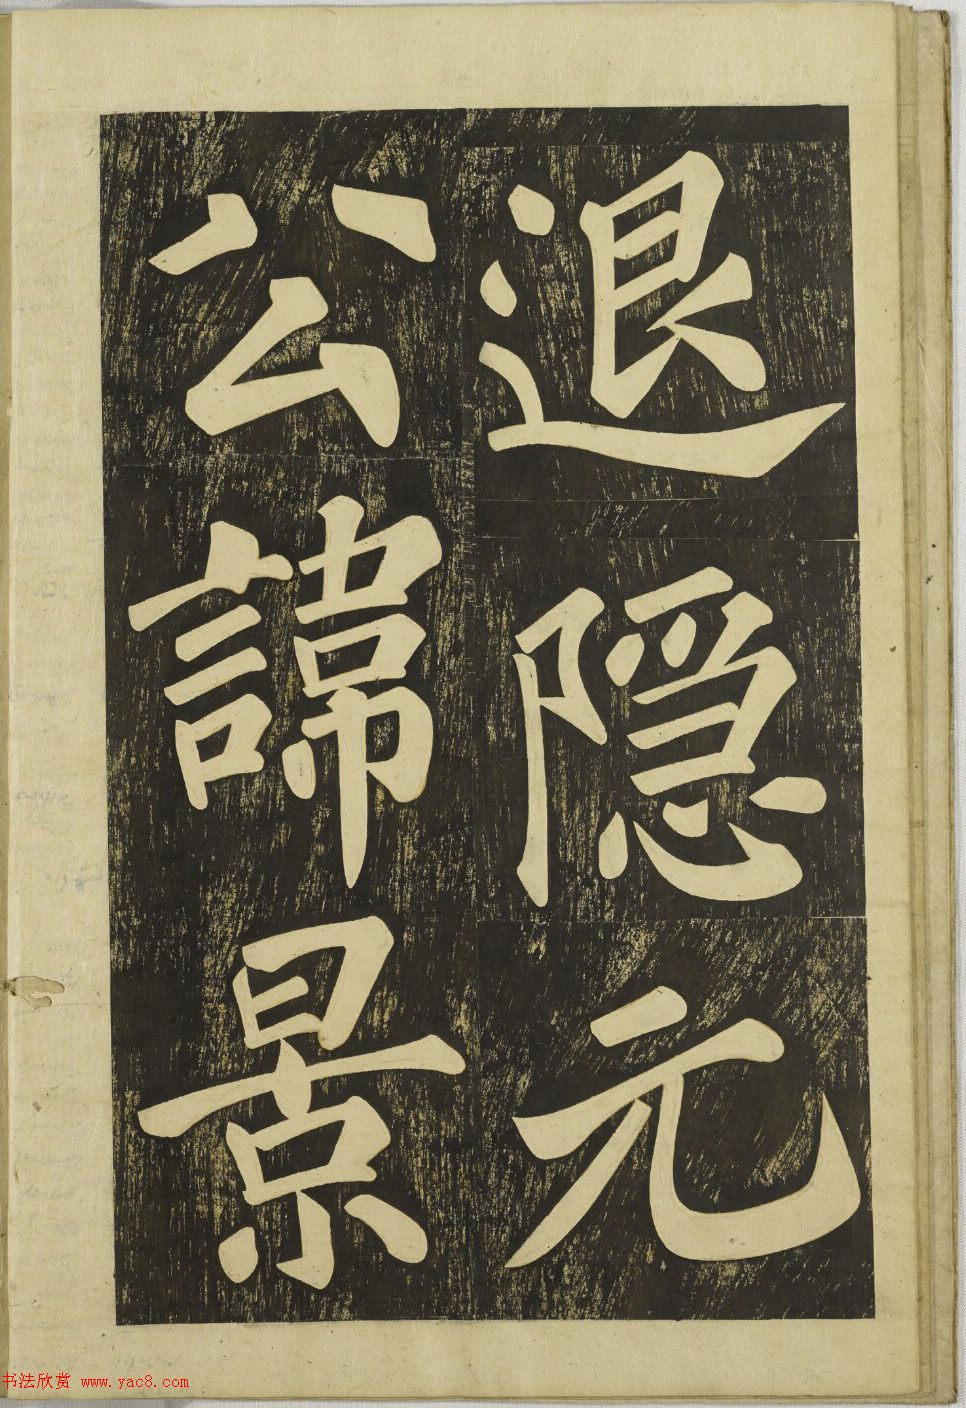 退隐元
公諱景
书法欣赏 www.yac8.com